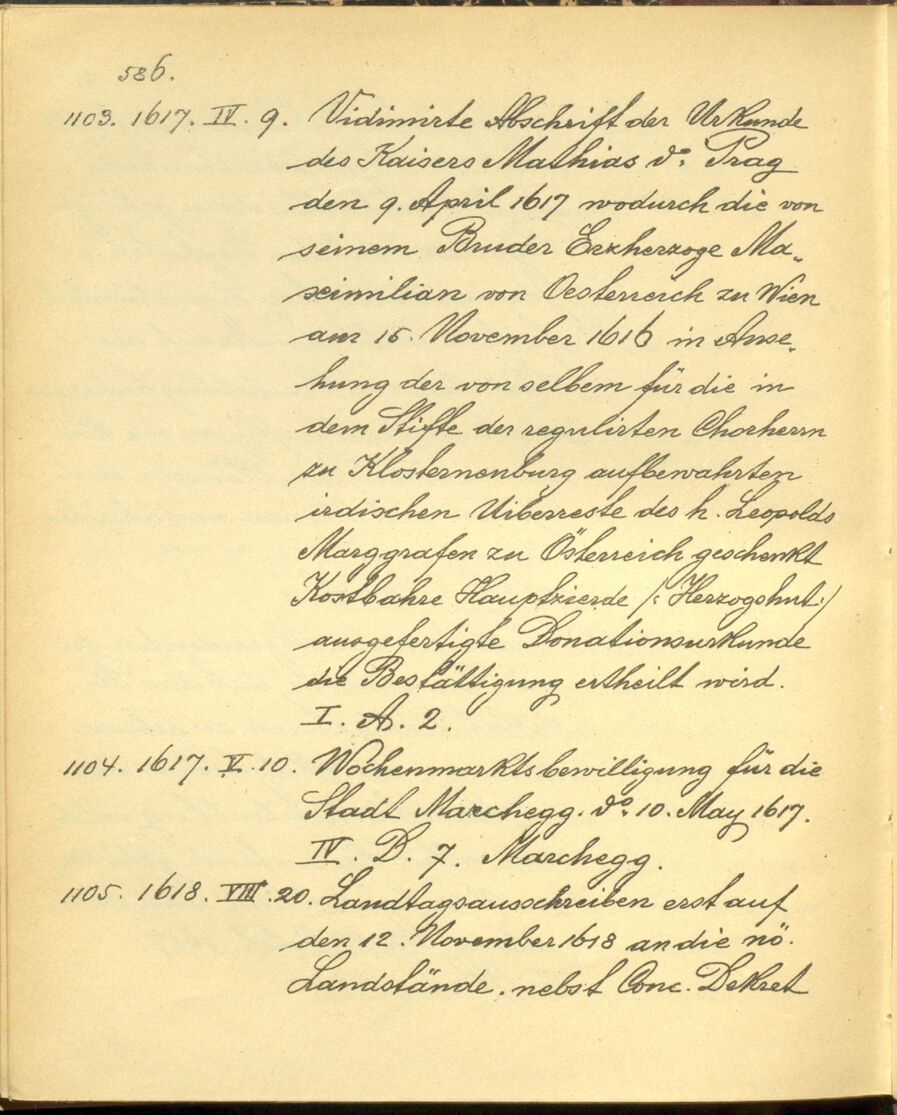 586.
1103. 1617. IV. 9. Vidimirte Abschrift der Urkunde
des Kaisers Mathias do: Prag
den 9. April 1617 wodurch die von
seinem Bruder Erzherzoge Ma„
ximilian von Oesterreich zu Wien
am 15. November 1616 in Anse„
hung der von selbem für die in
dem Stifte der regulirten Chorherrn
zu Klosterneuburg aufbewahrten
irdischen Uiberreste des h. Leopolds
Marggrafen zu Österreich geschenkt
Kostbahre Hauptzierde /: Herzogshut :/
ausgefertigte Donationsurkunde
die Bestättigung ertheilt wird.
I. A. 2.
1104. 1617. V. 10. Wochenmarktsbewilligung für die
Stadt Marchegg. do: 10. May 1617.
IV. D. 7. Marchegg.
1105. 1618. VIII. 20. Landtagsausschreiben erst auf
den 12. November 1618 an die nö.
Landstände. nebst Conc. Dekret